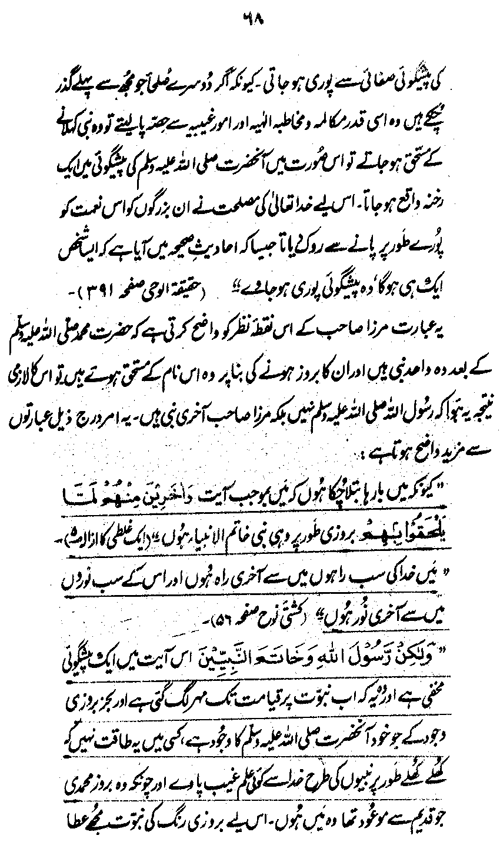 ۶۸
کی پیشگوئی صفائی سے پوری ہو جاتی۔ کیونکہ اگر دُوسرے صُلحا جو مجھ سے پہلے گذر
چکے ہیں وہ اسی قدر مکالمہ و مخاطبہ الٰہیہ اور امورِ غیبیہ سے حصّہ پا لیتے تو وہ نبی کہلانے
کے مستحق ہو جاتے تو اس صُورت میں آنحضرت صلی اللہ علیہ وسلم کی پیشگوئی میں ایک
رخنہ واقع ہو جاتا۔ اس لیے خدا تعالیٰ کی مصلحت نے ان بزرگوں کو اس نعمت کو
پُورے طور پر پانے سے روک دیا تا جیسا کہ احادیثِ صحیحہ میں آیا ہے کہ ایسا شخص
ایک ہی ہو گا، وہ پیشگوئی پوری ہو جاوے“ (حقیقۃ الوحی صفحہ ۳۹۱)۔
یہ عبارت مرزا صاحب کے اس نقطۂ نظر کو واضح کرتی ہے کہ حضرت محمد صلی اللہ علیہ وسلم
کے بعد وہ واحد نبی ہیں اور ان کا بروز ہونے کی بنا پر وہ اس نام کے مستحق ہوتے ہیں تو اس کا لازمی
نتیجہ یہ ہوا کہ رسول اللہ صلی اللہ علیہ وسلم نہیں بلکہ مرزا صاحب آخری نبی ہیں۔ یہ امر درج ذیل عبارتوں
سے مزید واضح ہوتا ہے :
”کیونکہ میں بارہا بتلا چکا ہوں کہ میں بموجب آیت وَاٰخَرِیْنَ مِنْهُمْ لَمَّا
یَلْحَقُوْا بِهِمْ بروزی طور پر وہی نبی خاتم الانبیاء ہُوں“ (ایک غلطی کا ازالہ)۔
”میں خدا کی سب راہوں میں سے آخری راہ ہُوں اور اس کے سب نوروں
میں سے آخری نُور ہُوں“ (کشتی نوح صفحہ ۵۶)۔
”وَلٰكِنْ رَّسُوْلَ اللهِ وَخَاتَمَ النَّبِيِّيْنَ اس آیت میں ایک پیشگوئی
مخفی ہے اور وُہ یہ کہ اب نبوّت پر قیامت تک مہر لگ گئی ہے اور بجز بروزی
وجود کے جو خود آنحضرت صلی اللہ علیہ وسلم کا وجُود ہے، کسی میں یہ طاقت نہیں کہ
کُھلے کُھلے طور پر نبیوں کی طرح خدا سے کوئی علمِ غیب پاوے اور چونکہ وہ بروزِ محمدی
جو قدیم سے موعُود تھا وہ میں ہُوں۔ اس لیے بروزی رنگ کی نبوّت مجھے عطا